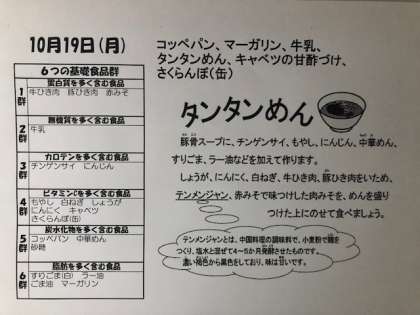 10月19日(月)
コッペパン、マーガリン、牛乳、
タンタンめん、キャベツの甘酢づけ、
さくらんぼ(缶)
6つの基礎食品群
1群
蛋白質を多く含む食品
牛ひき肉 豚ひき肉 赤みそ
2群
無機質を多く含む食品
牛乳
3群
カロテンを多く含む食品
チンゲンサイ にんじん
4群
ビタミンCを多く含む食品
もやし 白ねぎ しょうが
にんにく キャベツ
さくらんぼ(缶)
5群
炭水化物を多く含む食品
コッペパン 中華めん
砂糖
6群
脂肪を多く含む食品
すりごま(白) ラー油
ごま油 マーガリン
タンタンめん
豚骨スープに、チンゲンサイ、もやし、にんじん、中華めん、
すりごま、ラー油などを加えて作ります。
しょうが、にんにく、白ねぎ、牛ひき肉、豚ひき肉をいため、
テンメンジャン、赤みそで味つけした肉みそを、めんを盛り
つけた上にのせて食べましょう。
テンメンジャンとは、中国料理の調味料で、小麦粉で麹を
つくり、塩水と混ぜて4~5か月発酵させたものです。
濃い褐色から黒色をしており、味は甘いです。